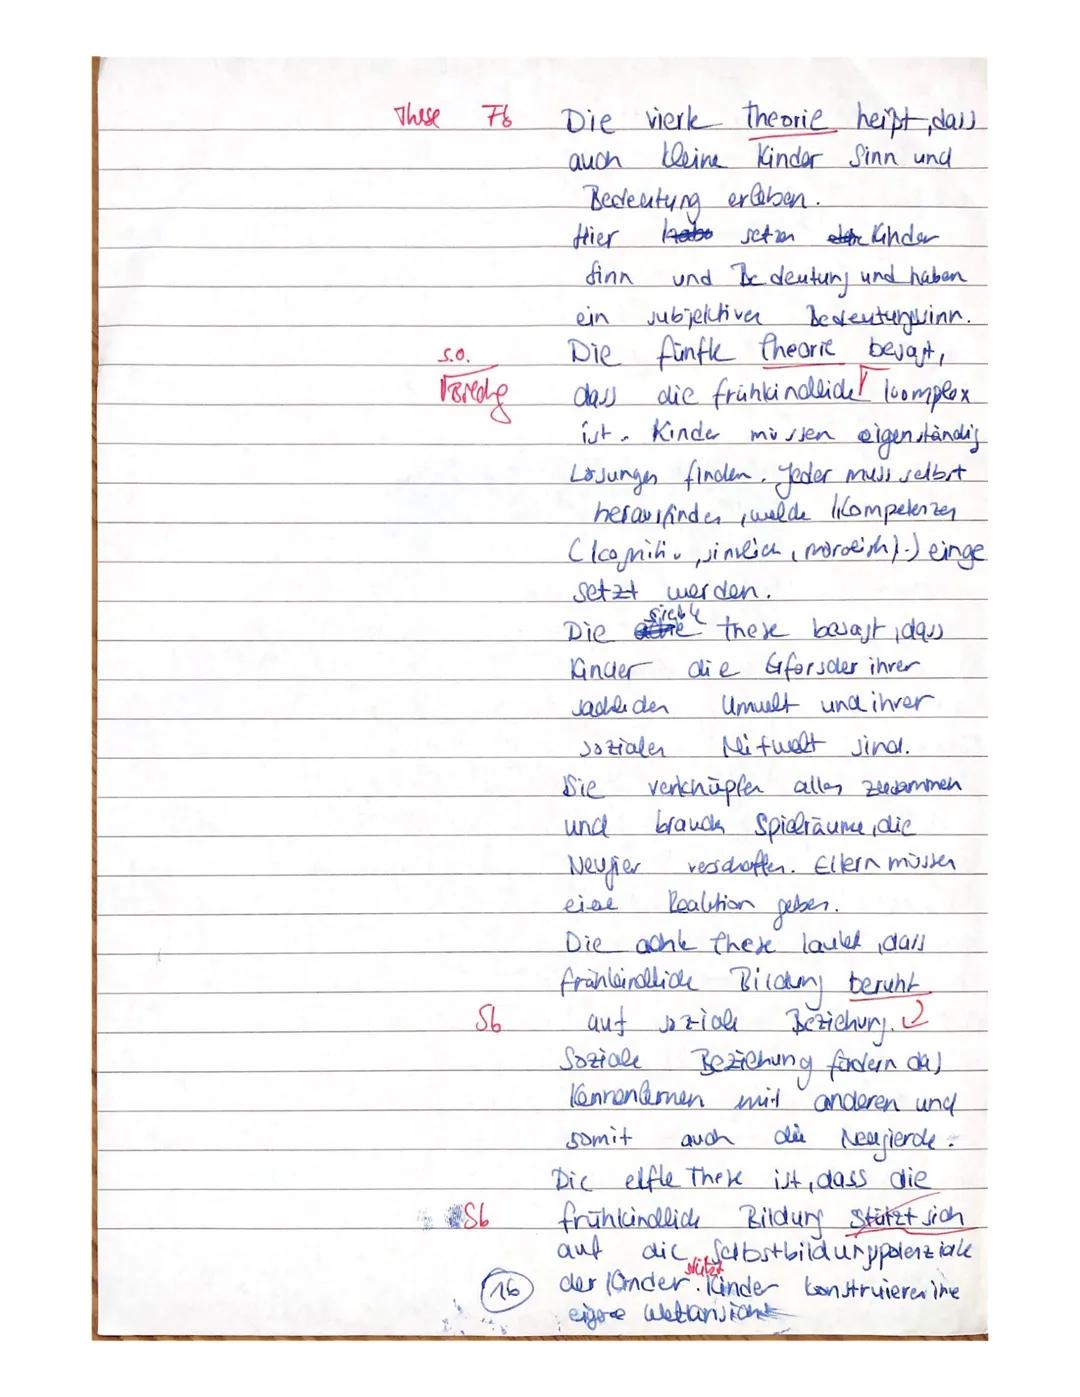 These Fb Die vierte theorie heißt, dass
auch kleine Kinder Sinn und
Bedeutung erleben.
Hier habe setzen Kinder
Sinn und Bedeutung und haben
ein subjektiver Bedeutungssinn.
s.o. Die fünfte theorie besagt,
dass die frühkindliche komplex
ist. Kinder müssen eigenständig
Lösungen finden. Jeder muss selbst
herausfinden, welche Kompetenzen
(kognitiv, sinnlich, moralisch) einge
setzt werden.
Die siebte these besagt, dass
Kinder die Erforscher ihrer
sachlichen Umwelt und ihrer
sozialen Mitwelt sind.
Sie verknüpfen alles zusammen
und brauch Spielräume, die
Neugier verschaffen. Eltern müssen
eine Reaktion geben.
Die achte these lautet, dass
frühkindliche Bildung beruht
Sb auf soziale Beziehung.
Soziale Beziehung fördern das
Kennenlernen mit anderen und
somit auch die Neugierde.
Die elfte These ist, dass die
Sb frühkindliche Bildung stützt sich
auf die Selbstbildungspotenziale
stützt
16 der Kinder. Kinder konstruieren ihre
eigene Weltansicht